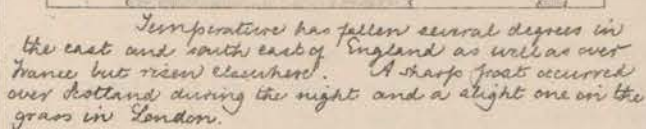 Temperature has fallen several degrees in
the east and south east of England as well as over
France but risen elsewhere. A sharp frost occurred
over Scotland during the night and a slight one on the
grass in London.